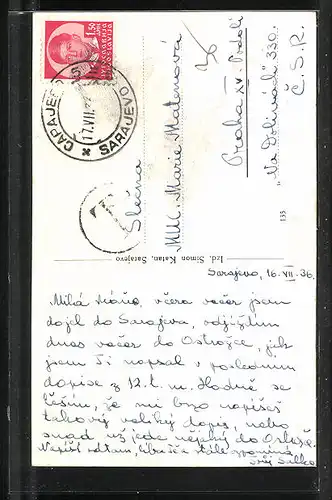 1.50
ЈУГОСЛАВИЈА
JUGOSLAVIJA
САРАЈЕВО 5
17.VII.
SARAJEVO
T
Slečna
MUC. Marie Matenová
Praha XV. Podolí
"Na Dolinách" 330.
Č. S. R.
135
Izd. Simon Katan, Sarajevo
Sarajevo, 16. VII. 36.
Milá Máňo, včera večer jsem
dojel do Sarajeva, odjíždím
dnes večer do Ostrožce, jak
jsem Ti napsal v posledním
dopise z 12. t. m. Hodně se
těším, že mi brzo napíšeš
takový veliký dopis, nebo
snad už jede nějaký do
Napiš odtam, stále
Tvůj